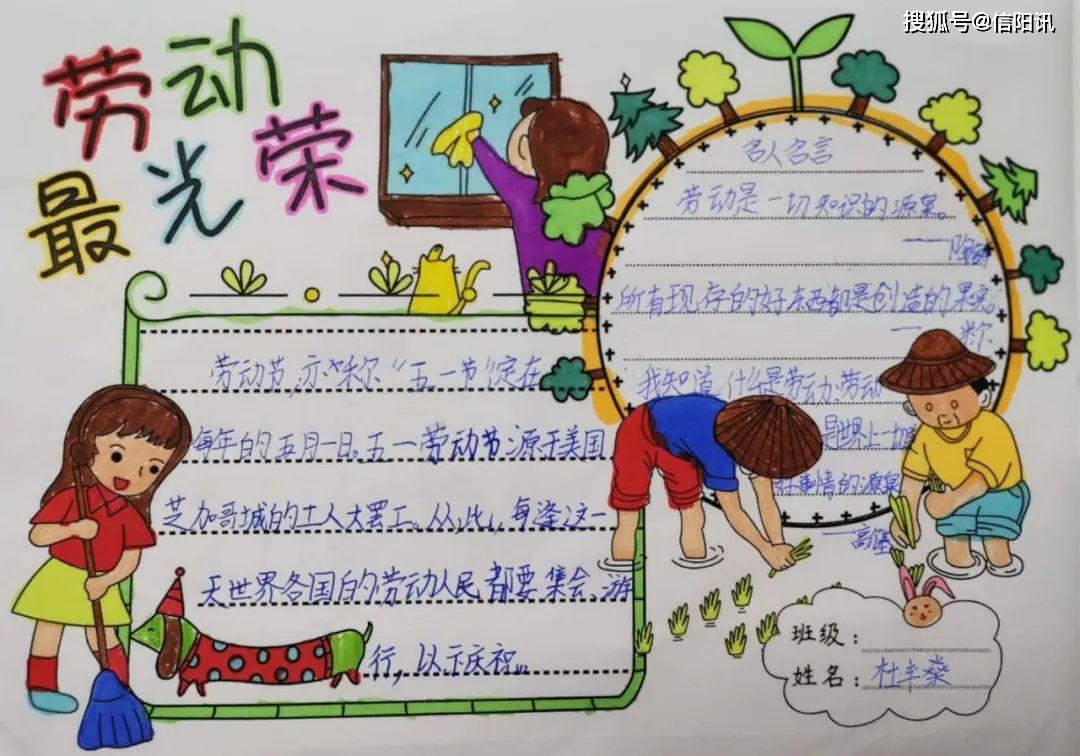 搜狐号@信阳讯
劳动
最光荣
名人名言
劳动是一切知识的源泉。
——陶铸
所有现存的好东西都是创造的果实。
——米尔
我知道什么是劳动:劳动
是世界上一切
好事情的源泉
——高
劳动节,亦称“五一节”定在
每年的五月一日。五一劳动节源于美国
芝加哥城的工人大罢工。从此,每逢这一
天世界各国的劳动人民都要集会、游
行,以示庆祝。
班级:
姓名:杜丰燊